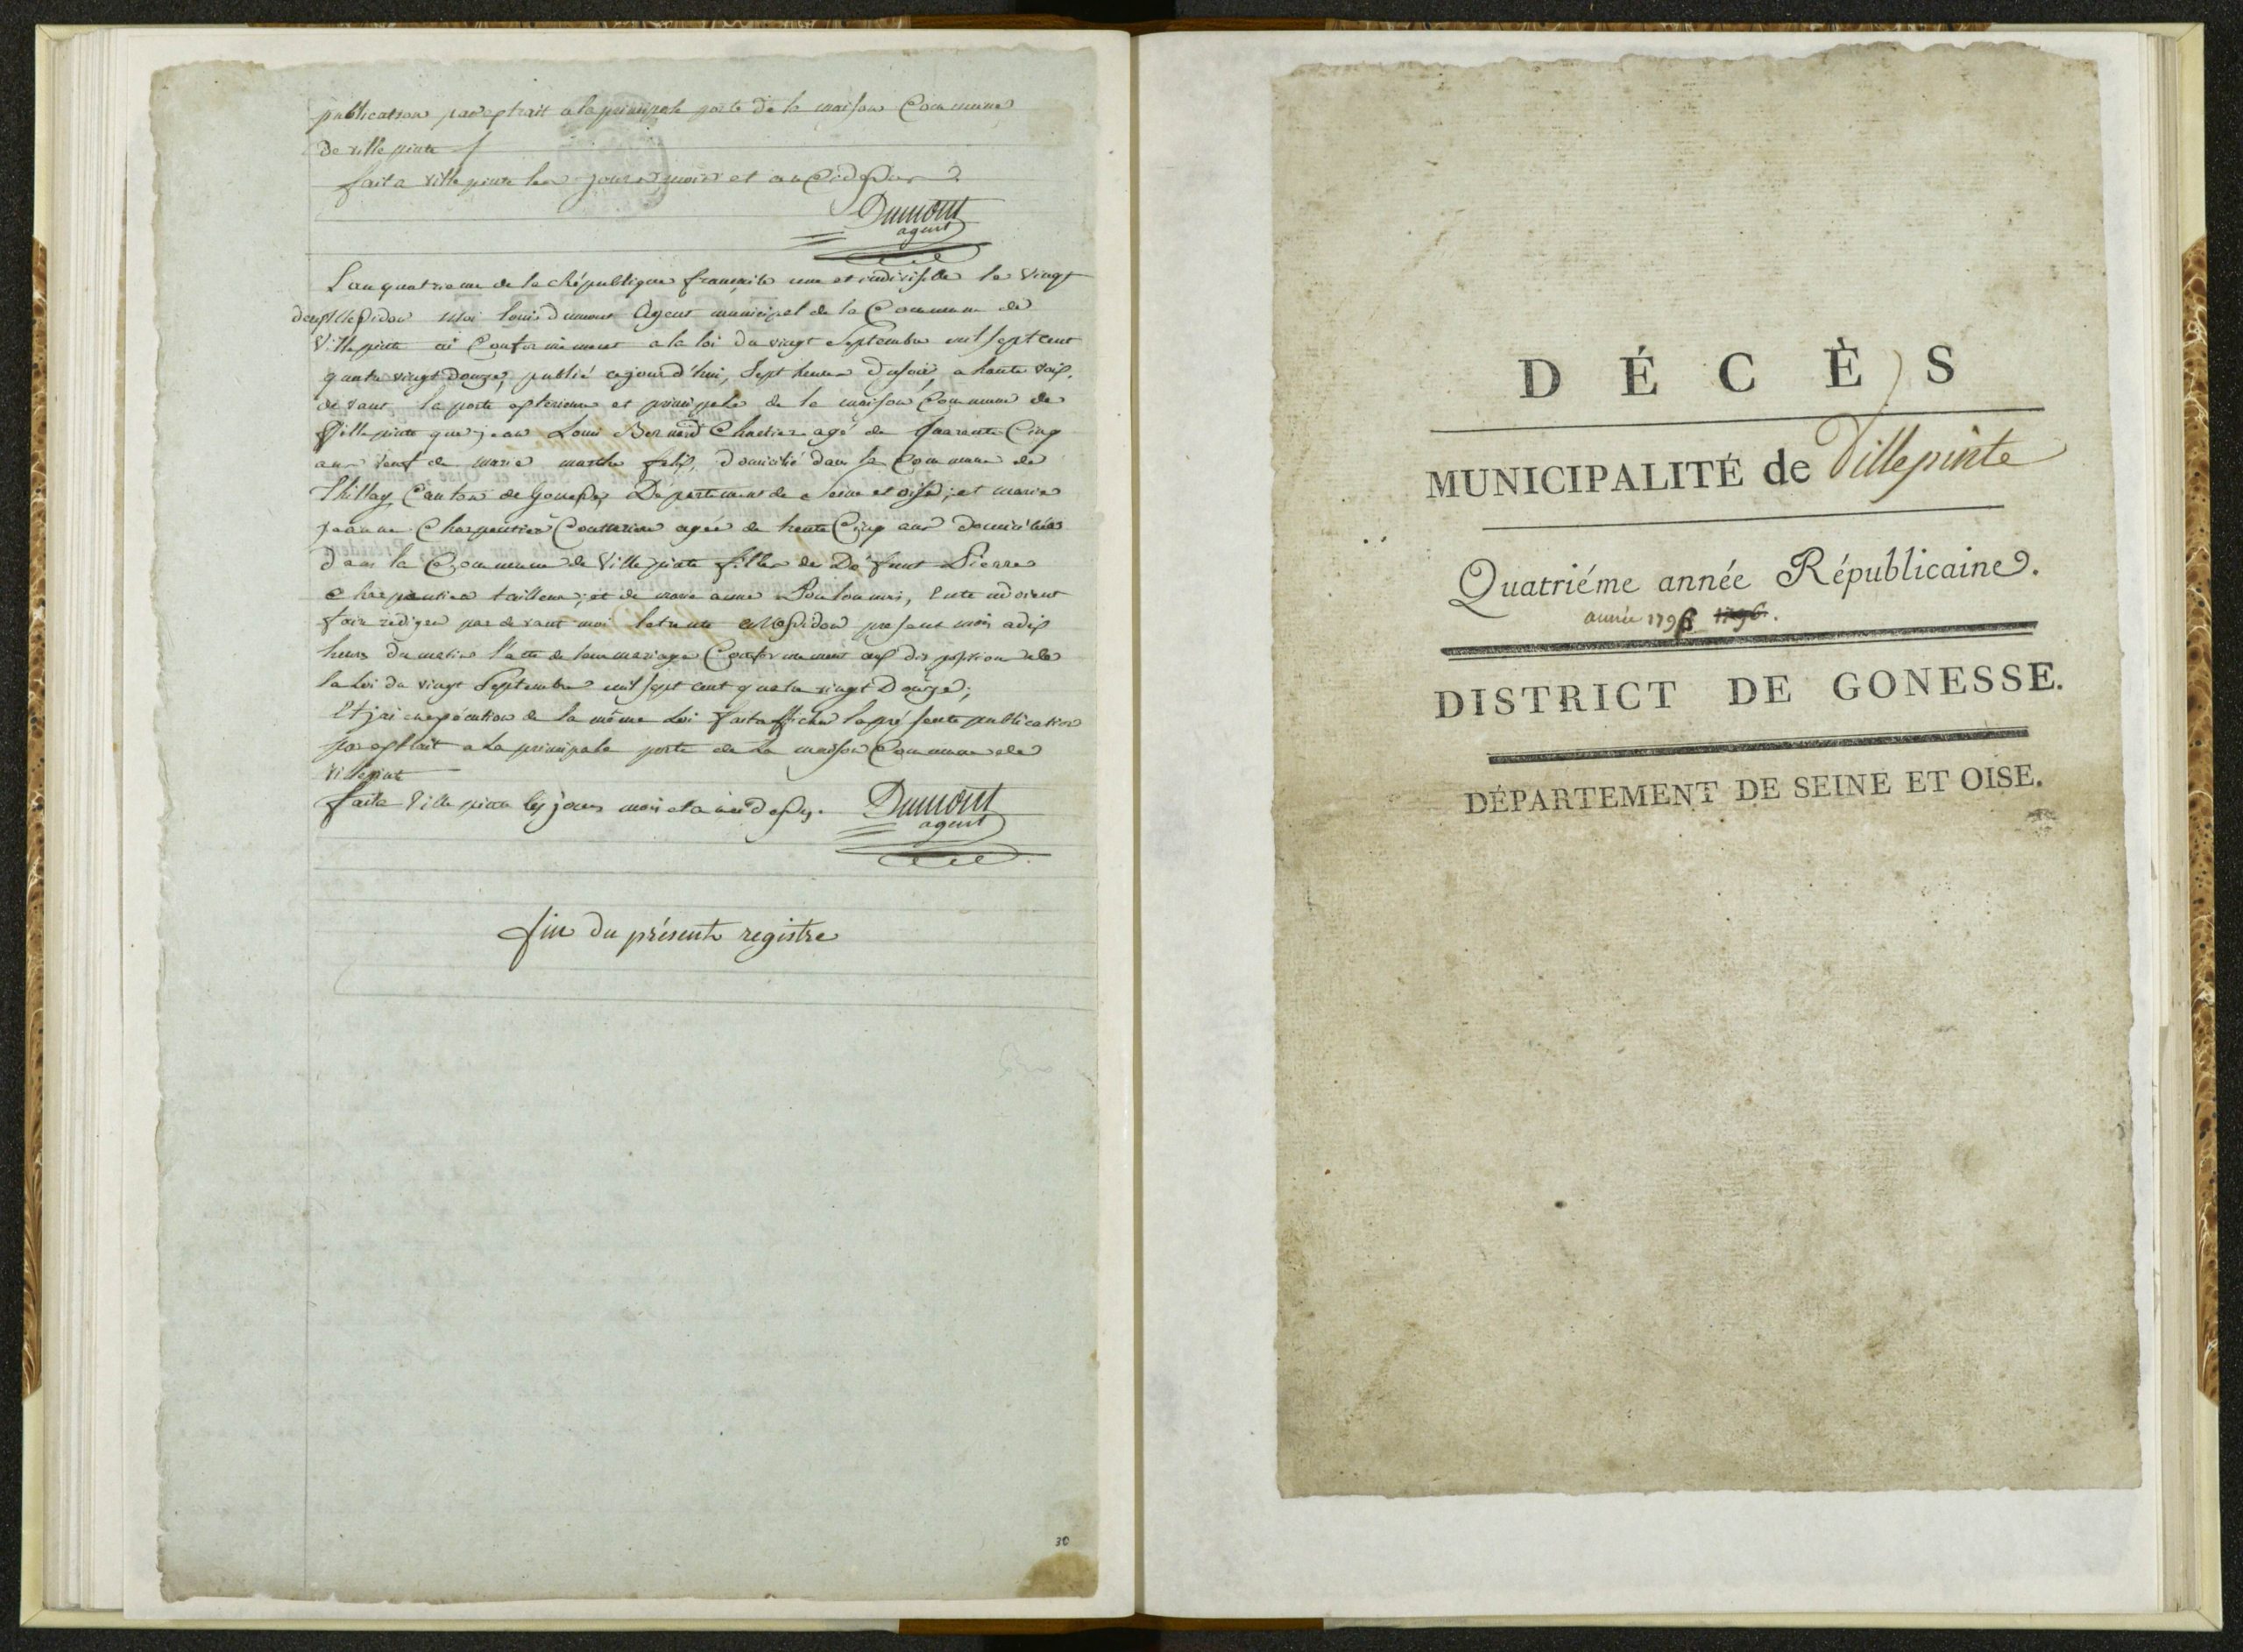 publication par extrait a la principale porte de la maison Commune
de ville pinte
fait a ville pinte les jours mois et an Cidessus
Dumont
agent
L'an quatrieme de la République française une et indivisible le vingt
deux Messidor Moi louis dumont Agent municipal de la Commune de
Villepinte ai Conformément a la loi du vingt Septembre mil sept cent
quatre vingt douze, publié cejourd'hui, Sept heures du soir, a haute voix,
devant la porte exterieure et principale de la maison Commune de
Villepinte que jean Louis Bernard Chartier agé de quarante Cinq
ans veuf de marie marthe felix, domicilié dans la Commune de
Thillay Canton de Gonesse, Departement de Seine et oise; et marie
jeanne Charpentier Couturiere agée de trente Cinq ans domiciliée
dans la Commune de Villepinte fille de Défunt Pierre
Charpentier tailleur; et de marie anne, entendoient
faire rédiger par devant moi le trente Messidor present mois a dix
heures du matin l'acte de leur mariage Conformement aux disposition de
la loi du vingt Septembre mil sept cent quatre vingt Douze;
Et j'ai en exécution de la même Loi fait afficher la présente publication
par extrait a la principale porte de la maison Commune de
villepinte
fait a Ville pinte les jours mois et an cidessus. Dumont
agent
fin du présente registre
30
DÉCÈS
MUNICIPALITÉ de Villepinte
Quatriéme année Républicaine.
année 1796 1796.
DISTRICT DE GONESSE.
DÉPARTEMENT DE SEINE ET OISE.